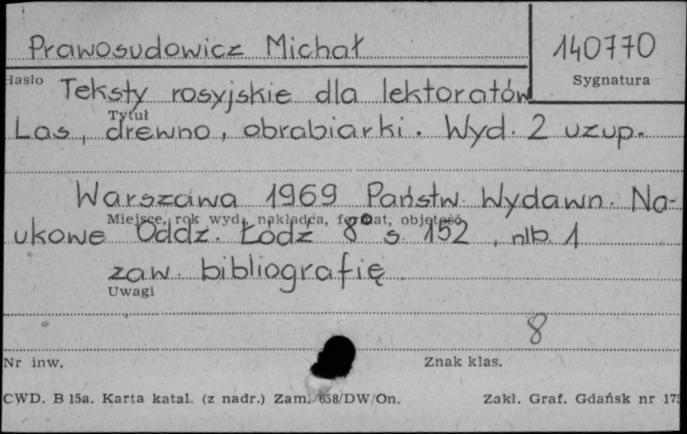 Prawosudowicz Michał
140770
Hasło
Sygnatura
Teksty rosyjskie dla lektoratów
Tytuł
Las, drewno, obrabiarki. Wyd. 2 uzup.
Warszawa 1969 Państw. Wydawn. Na-
Miejsce, rok wyd., nakładca, format, objętość
ukowe Oddz. Łódź 8° s. 152, nlb. 1
zaw. bibliografię
Uwagi
8
Nr inw.
Znak klas.
CWD. B 15a. Karta katal. (z nadr.) Zam. 658/DW/On.
Zakł. Graf. Gdańsk nr 17